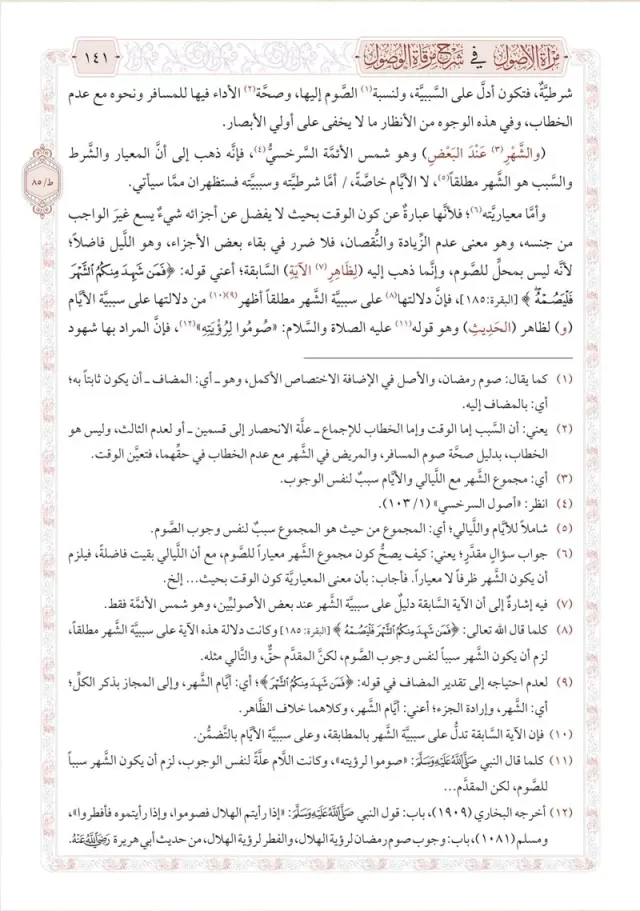 مرآة الأصول في شرح مرقاة الوصول
١٤١
شرطيَّةٌ، فتكون أدلَّ على السَّببية، ولنسبة(١) الصَّوم إليها، وصحَّة(٢) الأداء فيها للمسافر ونحوه مع عدم
الخطاب، وفي هذه الوجوه من الأنظار ما لا يخفى على أولي الأبصار.
(والشَّهْرِ(٣) عَنْدَ البَعْضِ) وهو شمس الأئمَّة السَّرخسيُّ(٤)، فإنَّه ذهب إلى أنَّ المعيار والشَّرط
والسَّبب هو الشَّهر مطلقاً(٥)، لا الأيَّام خاصَّة، / أمَّا شرطيَّته وسببيَّته فستظهران ممَّا سيأتي.
ط/٨٥
وأمَّا معياريَّته(٦)؛ فلأنَّها عبارةٌ عن كون الوقت بحيث لا يفضل عن أجزائه شيءٌ يسع غيرَ الواجب
من جنسه، وهو معنى عدم الزِّيادة والنُّقصان، فلا ضرر في بقاء بعض الأجزاء، وهو اللَّيل فاضلاً؛
لأنَّه ليس بمحلٍّ للصَّوم، وإنَّما ذهب إليه (لِظَاهِرِ(٧) الآيَةِ) السَّابقة؛ أعني قوله: ﴿فَمَن شَهِدَ مِنكُمُ ٱلشَّهْرَ
فَلْيَصُمْهُ ﴾ [البقرة: ١٨٥]، فإنَّ دلالتها(٨) على سببيَّة الشَّهر مطلقاً أظهر(٩)(١٠) من دلالتها على سببيَّة الأيَّام
(و) لظاهر (الحَدِيثِ) وهو قوله(١١) عليه الصلاة والسَّلام: «صُومُوا لِرُؤْيَتِهِ»(١٢)، فإنَّ المراد بها شهود
(١) كما يقال: صوم رمضان، والأصل في الإضافة الاختصاص الأكمل، وهو ـ أي: المضاف ـ أن يكون ثابتاً به؛
أي: بالمضاف إليه.
(٢) يعني: أن السَّبب إما الوقت وإما الخطاب للإجماع ـ علَّة الانحصار إلى قسمين ـ أو لعدم الثالث، وليس هو
الخطاب، بدليل صحَّة صوم المسافر، والمريض في الشَّهر مع عدم الخطاب في حقِّهما، فتعيَّن الوقت.
(٣) أي: مجموع الشَّهر مع اللَّيالي والأيَّام سببٌ لنفس الوجوب.
(٤) انظر: «أصول السرخسي» (١/ ١٠٣).
(٥) شاملاً للأيَّام واللَّيالي؛ أي: المجموع من حيث هو المجموع سببٌ لنفس وجوب الصَّوم.
(٦) جواب سؤالٍ مقدَّرٍ؛ يعني: كيف يصحُّ كون مجموع الشَّهر معياراً للصَّوم، مع أن اللَّيالي بقيت فاضلةً، فيلزم
أن يكون الشَّهر ظرفاً لا معياراً. فأجاب: بأن معنى المعياريَّة كون الوقت بحيث... إلخ.
(٧) فيه إشارةٌ إلى أن الآية السَّابقة دليلٌ على سببيَّة الشَّهر عند بعض الأصوليِّين، وهو شمس الأئمَّة فقط.
(٨) كلما قال الله تعالى: ﴿فَمَن شَهِدَ مِنكُمُ ٱلشَّهْرَ فَلْيَصُمْهُ ﴾ [البقرة: ١٨٥] وكانت دلالة هذه الآية على سببيَّة الشَّهر مطلقاً،
لزم أن يكون الشَّهر سبباً لنفس وجوب الصَّوم، لكنَّ المقدَّم حقٌّ، والتَّالي مثله.
(٩) لعدم احتياجه إلى تقدير المضاف في قوله: ﴿فَمَن شَهِدَ مِنكُمُ ٱلشَّهْرَ﴾؛ أي: أيَّام الشَّهر، وإلى المجاز بذكر الكلِّ؛
أي: الشَّهر، وإرادة الجزء؛ أعني: أيَّام الشَّهر، وكلاهما خلاف الظَّاهر.
(١٠) فإن الآية السَّابقة تدلُّ على سببيَّة الشَّهر بالمطابقة، وعلى سببيَّة الأيَّام بالتَّضمُّن.
(١١) كلما قال النبي ﷺ: «صوموا لرؤيته»، وكانت اللَّام علَّةً لنفس الوجوب، لزم أن يكون الشَّهر سبباً
للصَّوم، لكن المقدَّم...
(١٢) أخرجه البخاري (١٩٠٩)، باب: قول النبي ﷺ: «إذا رأيتم الهلال فصوموا، وإذا رأيتموه فأفطروا»،
ومسلم (١٠٨١)، باب: وجوب صوم رمضان لرؤية الهلال، والفطر لرؤية الهلال، من حديث أبي هريرة رَضِيَ اللَّهُ عَنْهُ.